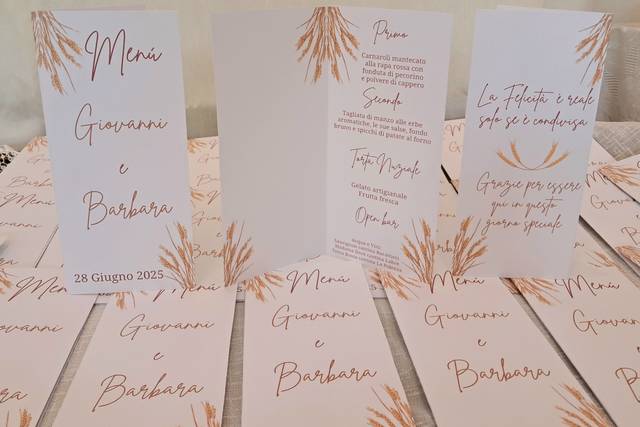 Menú
Giovanni
e
Barbara
28 Giugno 2025
Primo
Carnaroli mantecato
alla rapa rossa con
fonduta di pecorino
e polvere di cappero
Secondo
Tagliata di manzo alle erbe
aromatiche, le sue salse, fondo
bruno e spicchi di patate al forno
Torta Nuziale
Gelato artigianale
Frutta fresca
Open bar
Acqua e Vini:
La Felicità è reale
solo se è condivisa
Grazie per essere
qui in questo
giorno speciale
Menú
Giovanni
e
Barbara
Menú
Giovanni
e
Barbara
Menú
Giovanni
e
Barbara
Menú
Giovanni
e
Barbara